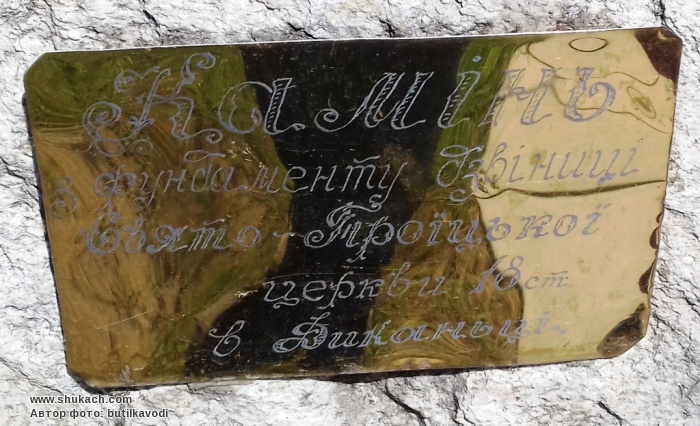 Камінь
з фундаменту дзвіниці
Свято-Троїцької
церкви 18 ст.
в Диканьці.
www.shukach.com
Автор фото: butilkavodi